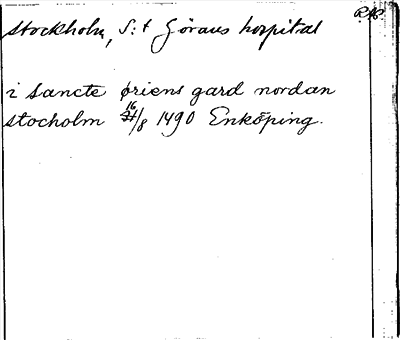 R.A.P.
Stockholm, S:t Görans hospital
i sancte øriens gard nordan
stocholm 16/8 1490 Enköping.